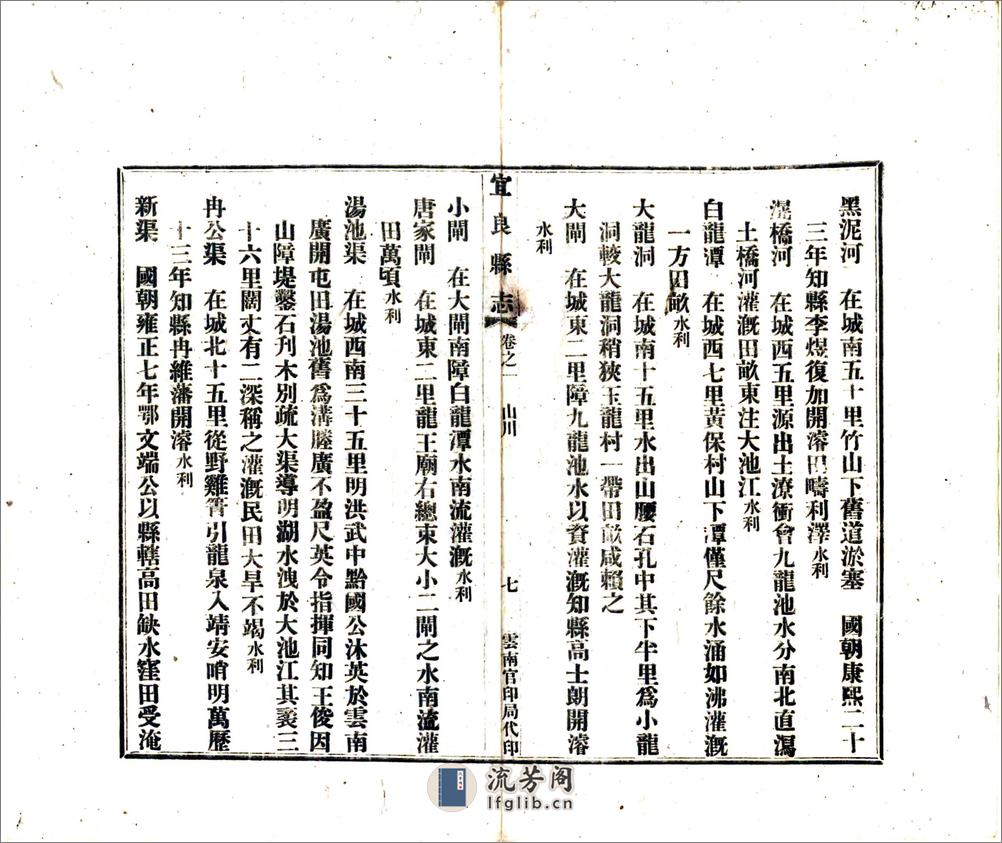 黑泥河　在城南五十里竹山下舊道淤塞　國朝康熙二十
三年知縣李煜復加開濬田疇利澤水利
滉橋河　在城西五里源出土潦衝會九龍池水分南北直瀉
土橋河灌溉田畝東注大池江水利
白龍潭　在城西七里黃保村山下潭僅尺餘水涌如沸灌溉
一方田畝水利
大龍洞　在城南十五里水出山腰石孔中其下半里爲小龍
洞較大龍洞稍狹玉龍村一帶田畝咸賴之
大閘　在城東二里障九龍池水以資灌溉知縣高士朗開濬
水利
宜良縣志　卷之一　山川　七　雲南官印局代印
小閘　在大閘南障白龍潭水南流灌溉水利
唐家閘　在城東二里龍王廟右總束大小二閘之水南流灌
田萬頃水利
湯池渠　在城西南三十五里明洪武中黔國公沐英於雲南
廣開屯田湯池舊爲溝塍廣不盈尺英令指揮同知王俊因
山障堤鑿石刋木別疏大渠導明湖水洩於大池江其袤三
十六里闊丈有二深稱之灌溉民田大旱不竭水利
冉公渠　在城北十五里從野雞箐引龍泉入靖安哨明萬歷
十三年知縣冉維藩開濬水利
新渠　國朝雍正七年鄂文端公以縣轄高田缺水窪田受淹
流芳阁
lfglib.cn